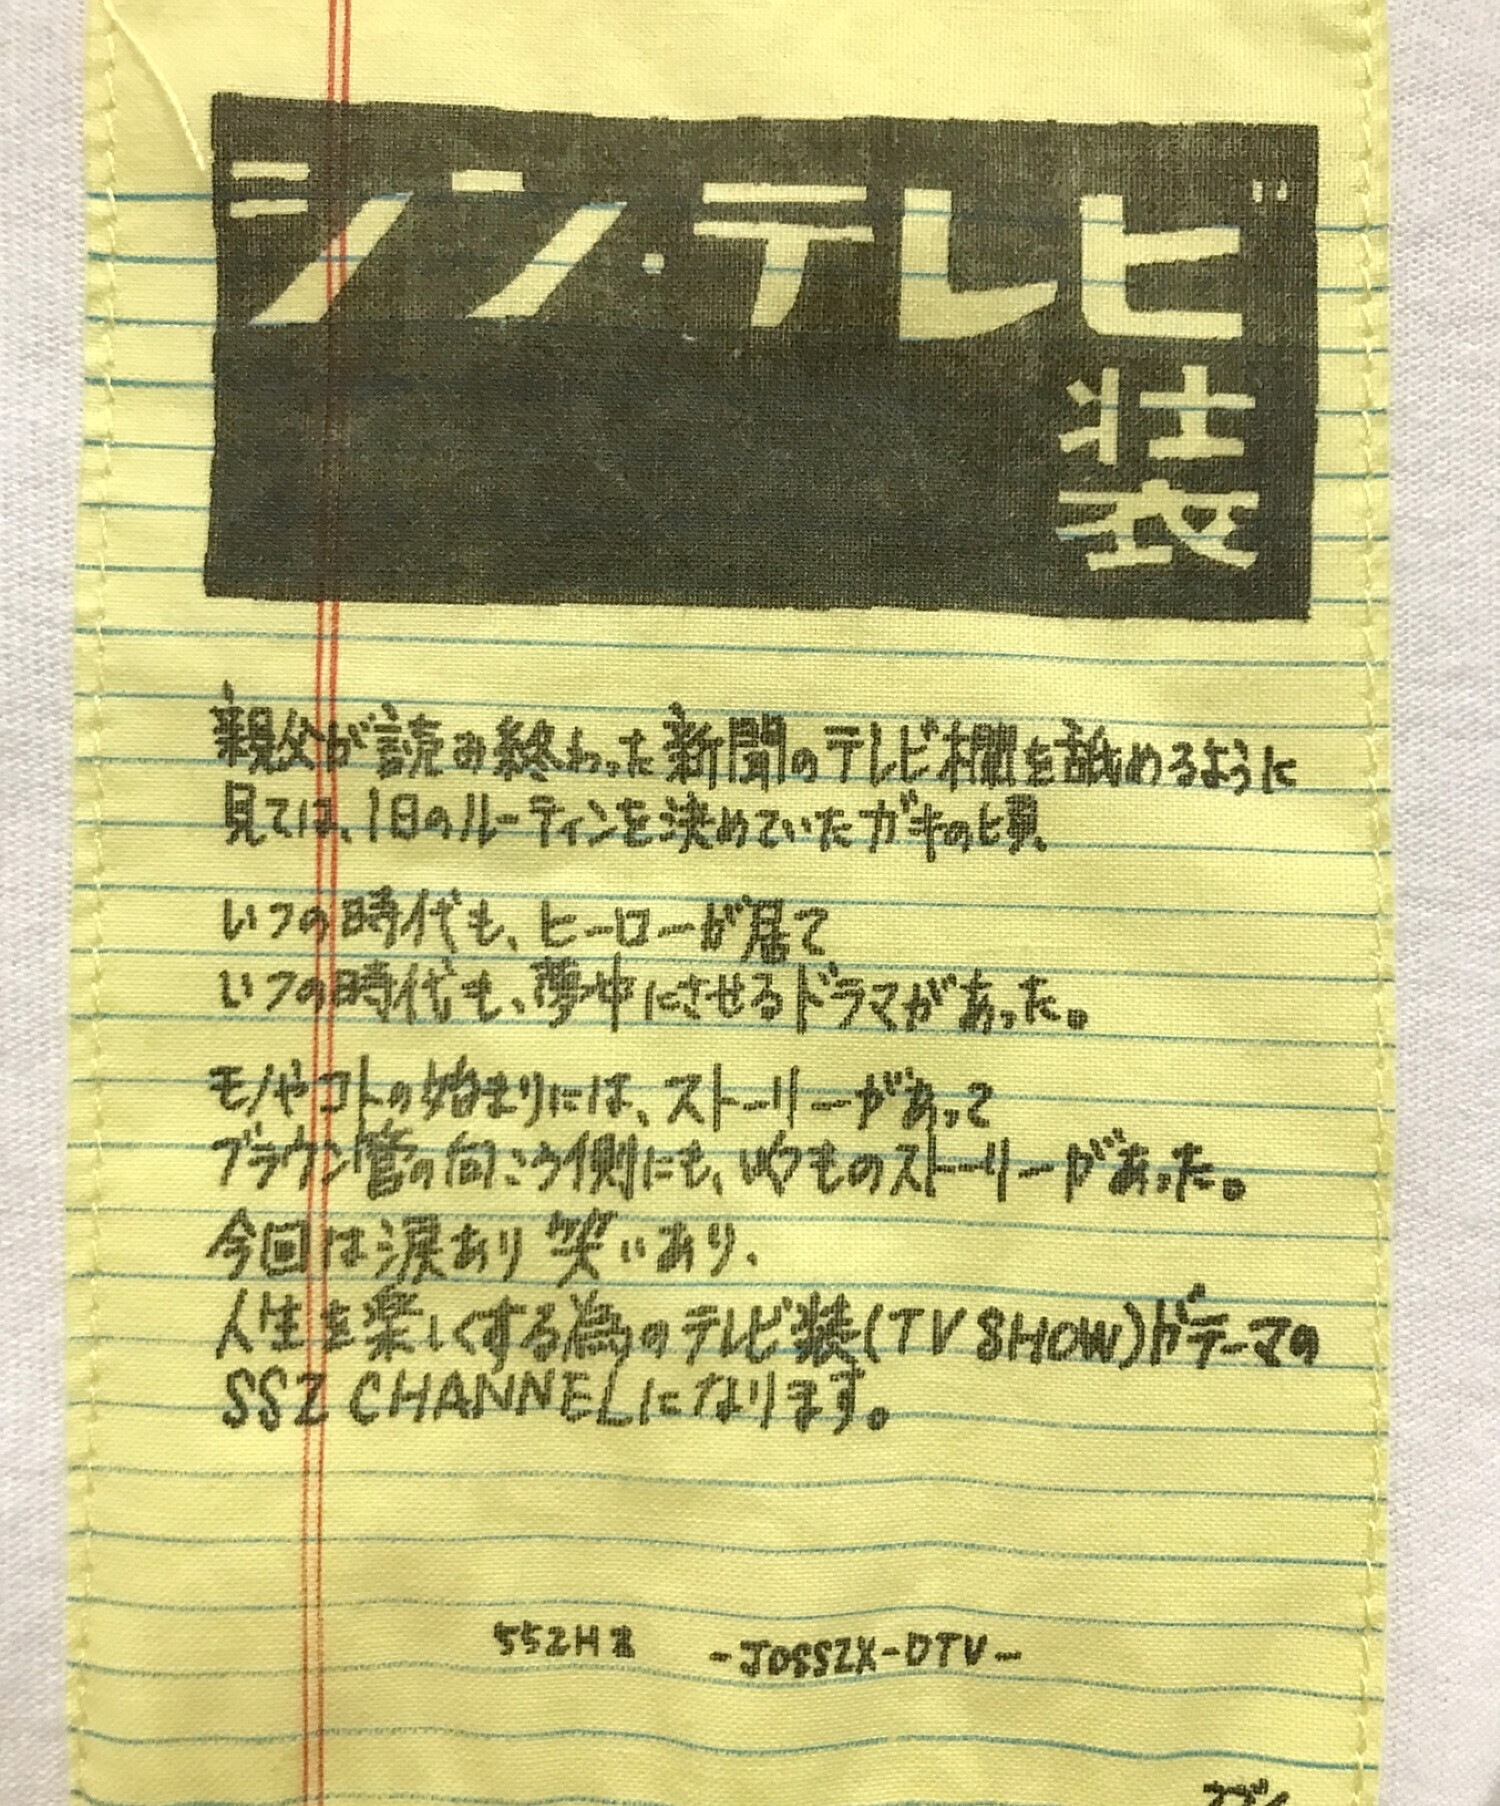 シン・テレビ
装
親父が読み終わった新聞のテレビ欄を舐めるように
見ては、1日のルーティンを決めていたガキの頃、
いつの時代も、ヒーローが居て
いつの時代も、夢中にさせるドラマがあった。
モノやコトの始まりには、ストーリーがあって
ブラウン管の向こう側にも、いくつものストーリーがあった。
今回は涙あり笑いあり、
人生を楽しくする為のテレビ装(TV SHOW)がテーマの
SSZ CHANNELになります。
SSZHZ -JOSSZX-DTV-